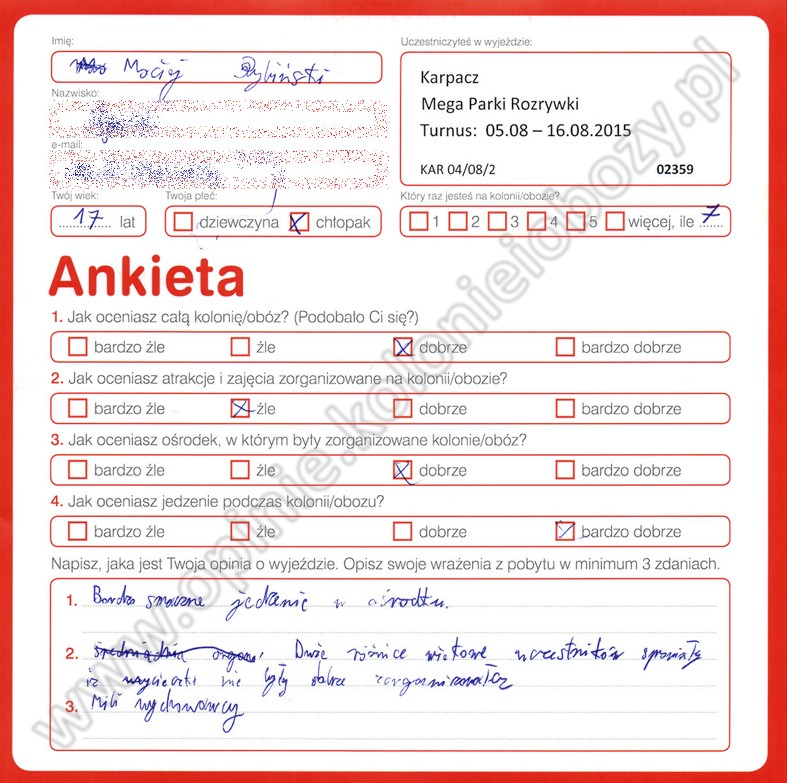 Imię:
Uczestniczyłeś w wyjeździe:
Maciej Rybiński
Karpacz
Mega Parki Rozrywki
Turnus: 05.08 – 16.08.2015
KAR 04/08/2 02359
Nazwisko:
e-mail:
Twój wiek: Twoja płeć: Który raz jesteś na kolonii/obozie?
17 lat dziewczyna chłopak 1 2 3 4 5 więcej, ile 7
Ankieta
1. Jak oceniasz całą kolonię/obóz? (Podobało Ci się?)
bardzo źle źle dobrze bardzo dobrze
2. Jak oceniasz atrakcje i zajęcia zorganizowane na kolonii/obozie?
bardzo źle źle dobrze bardzo dobrze
3. Jak oceniasz ośrodek, w którym były zorganizowane kolonie/obóz?
bardzo źle źle dobrze bardzo dobrze
4. Jak oceniasz jedzenie podczas kolonii/obozu?
bardzo źle źle dobrze bardzo dobrze
Napisz, jaka jest Twoja opinia o wyjeździe. Opisz swoje wrażenia z pobytu w minimum 3 zdaniach.
1. Bardzo smaczne jedzenie w ośrodku.
2. Duże różnice wiekowe uczestników
iż wycieczki nie były dobrze
3. Mili wychowawcy
www.opinie.kolonieiobozy.pl